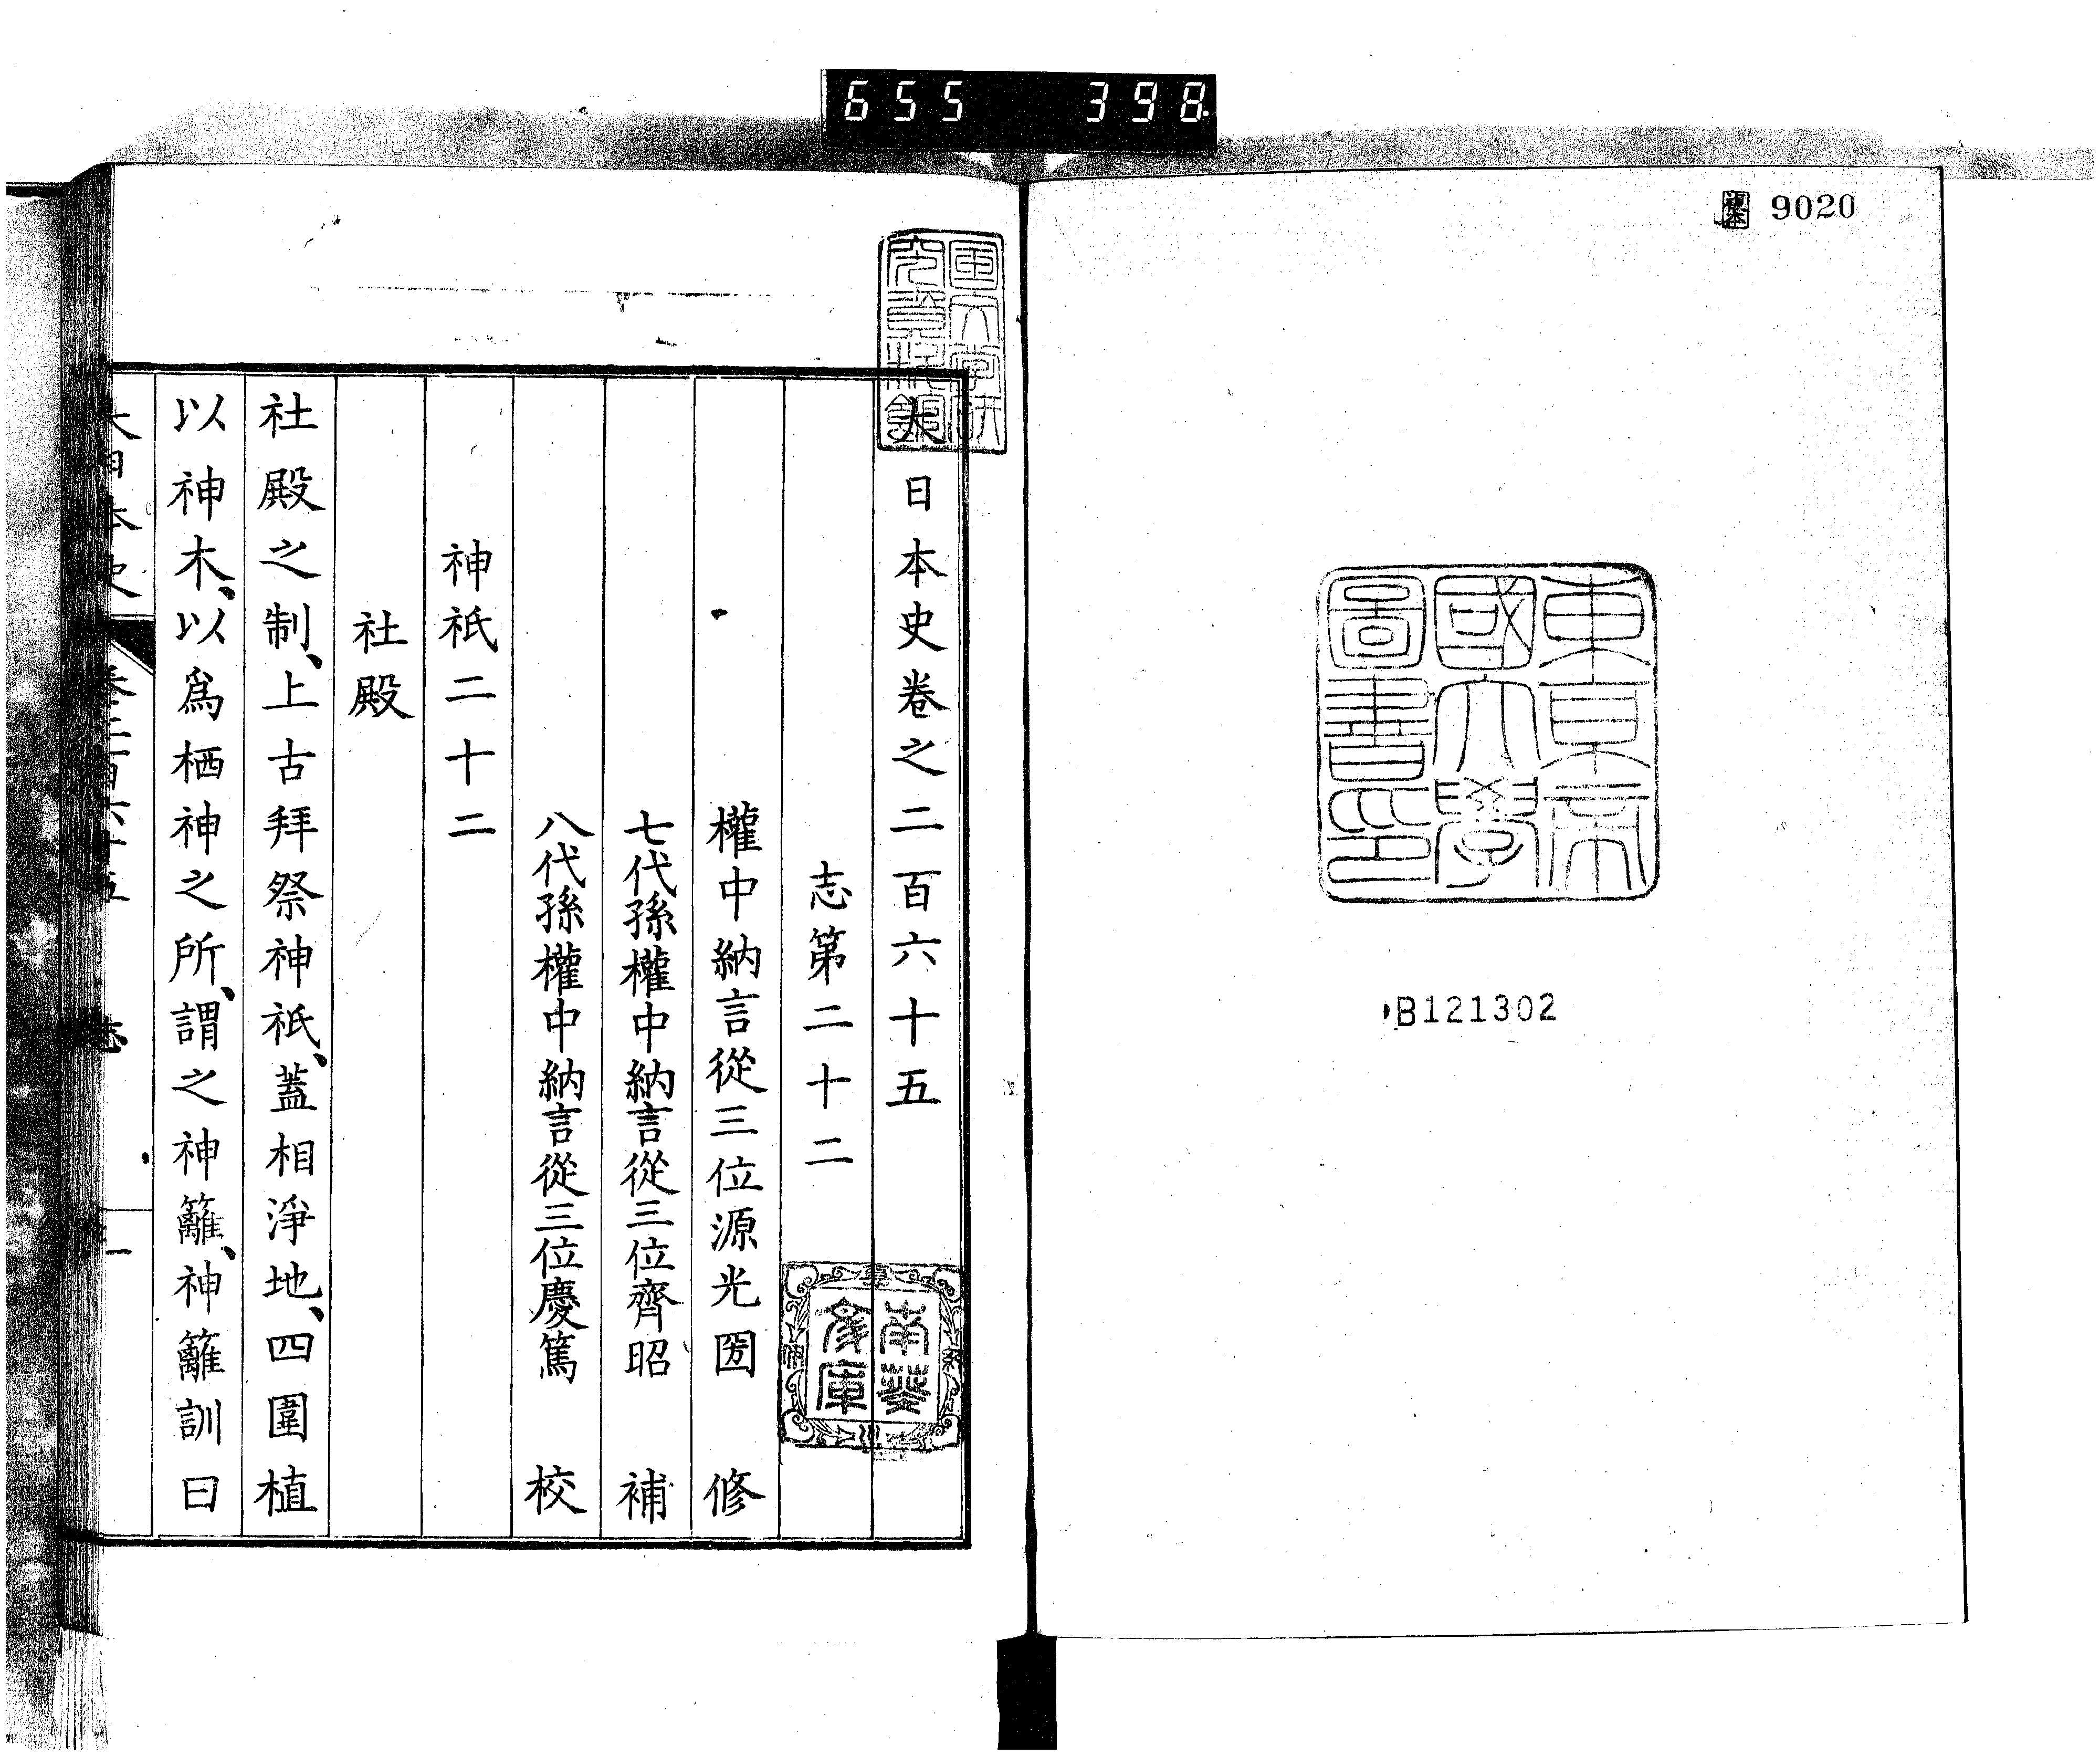 655 398
複本 9020
東京帝
國大學
圖書印
B121302
大日本史卷之二百六十五
志第二十二
權中納言從三位源光圀 修
七代孫權中納言從三位齊昭 補
八代孫權中納言從三位慶篤 校
神祇二十二
社殿
社殿之制、上古拜祭神祇、蓋相淨地、四圍植
以神木、以爲栖神之所、謂之神籬、神籬訓曰
大日本史 卷二百六十五 志 一
南葵
文庫